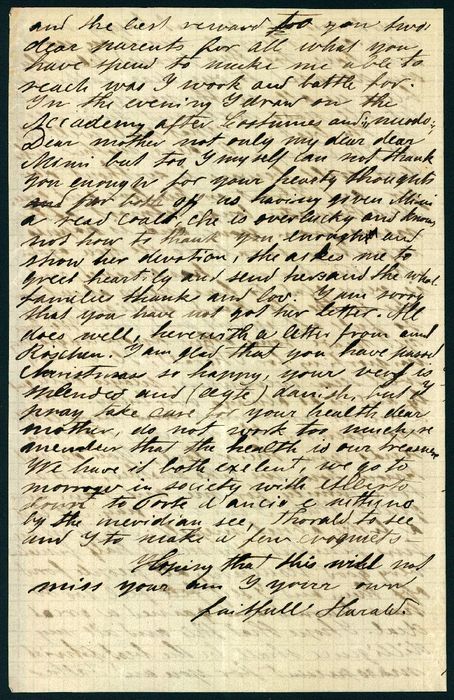 and the best reward too you two
dear parents for all what you
have spend to make me able to
reach was I work and battle for.
In the evening I draw on the
Accademy after Costumes and "nuodo".
Dear mother not only my dear dear
Mimi but too I myself can not thank
you enough for your hearty thoughts
for both of us having given Mimi
a read could she is overlucky and knows
not how to thank you enough and
show her devotion, she askes me to
greed heartly and send hers and the whole
families thanks and lov. I am sorry
that you have not got her letter. All
does well, herewith a letter from aunt
Roschen. I am glad that you have passed
Christmas so happy, your verf is
splended and (ægte) danish, but I
pray take care for your health dear
mother, do not work too much, re
member that the health is our treasure
We have it both exelent, we go to
morrow in society with Alberto
down to Porto d'ancio e nettuno
by the meridian see, Thorald to see
and I to make a few croquets
Hoping that this will not
miss your aim I your own
faithfull Harald.